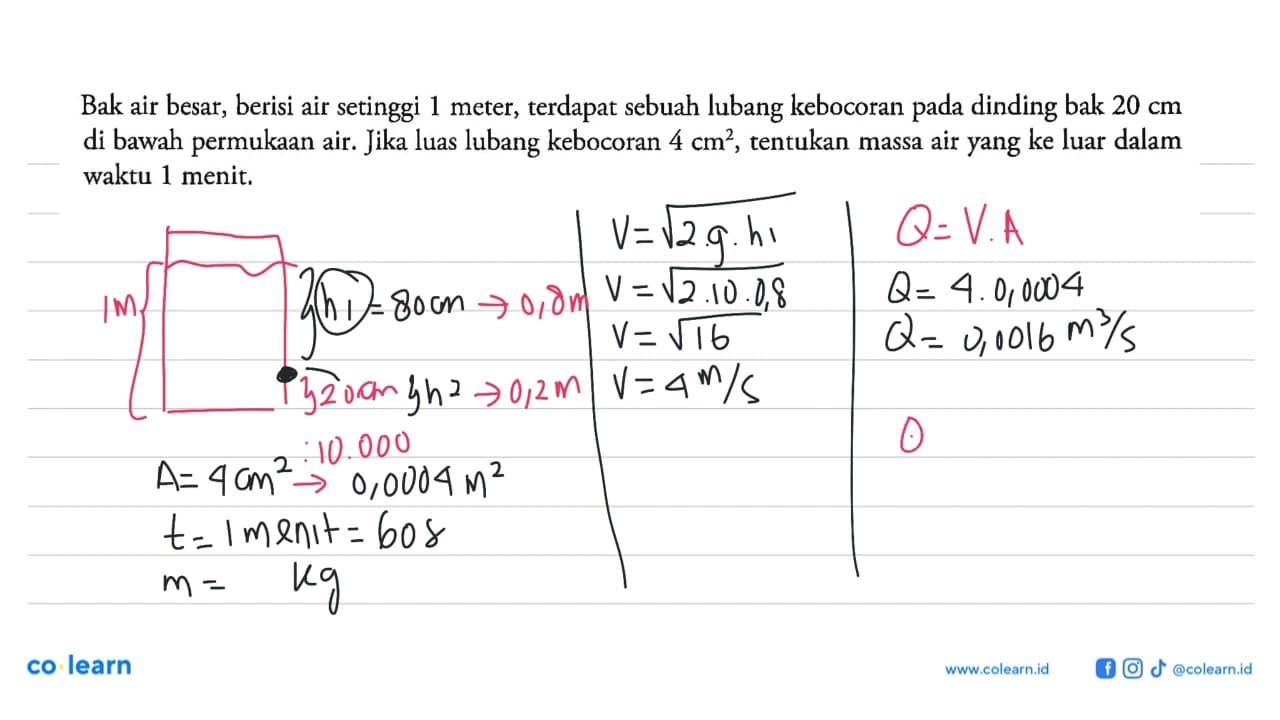 Bak air besar, berisi air setinggi 1 meter, terdapat sebuah lubang kebocoran pada dinding bak 20 cm
di bawah permukaan air. Jika luas lubang kebocoran 4 cm², tentukan massa air yang ke luar dalam
waktu 1 menit.
1M
h1 = 80cm → 0,8m
20cm h2 → 0,2m
:10.000
A= 4cm² → 0,0004 m²
t= 1 menit = 60s
m = kg
V=√2.g.h1
V=√2.10.0,8
V=√16
V=4 m/s
Q=V.A
Q= 4.0,0004
Q= 0,0016 m³/s
co·learn
www.colearn.id
@colearn.id